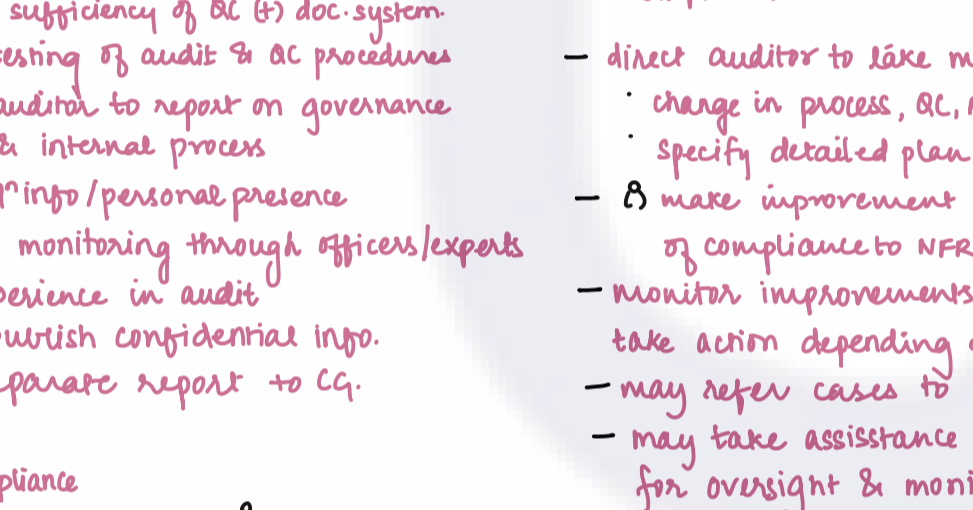 sufficiency of QC (+) doc. system.
of audit & QC procedures
auditor to report on governance
& internal process
info / personal presence
monitoring through officers/experts
in audit
confidential info.
report to CG.
- direct auditor to take
· change in process, QC,
· specify detailed plan
- & make improvement
of compliance to NFR
- monitor improvements
take action depending
- may refer cases to
- may take assisstance
for oversight &